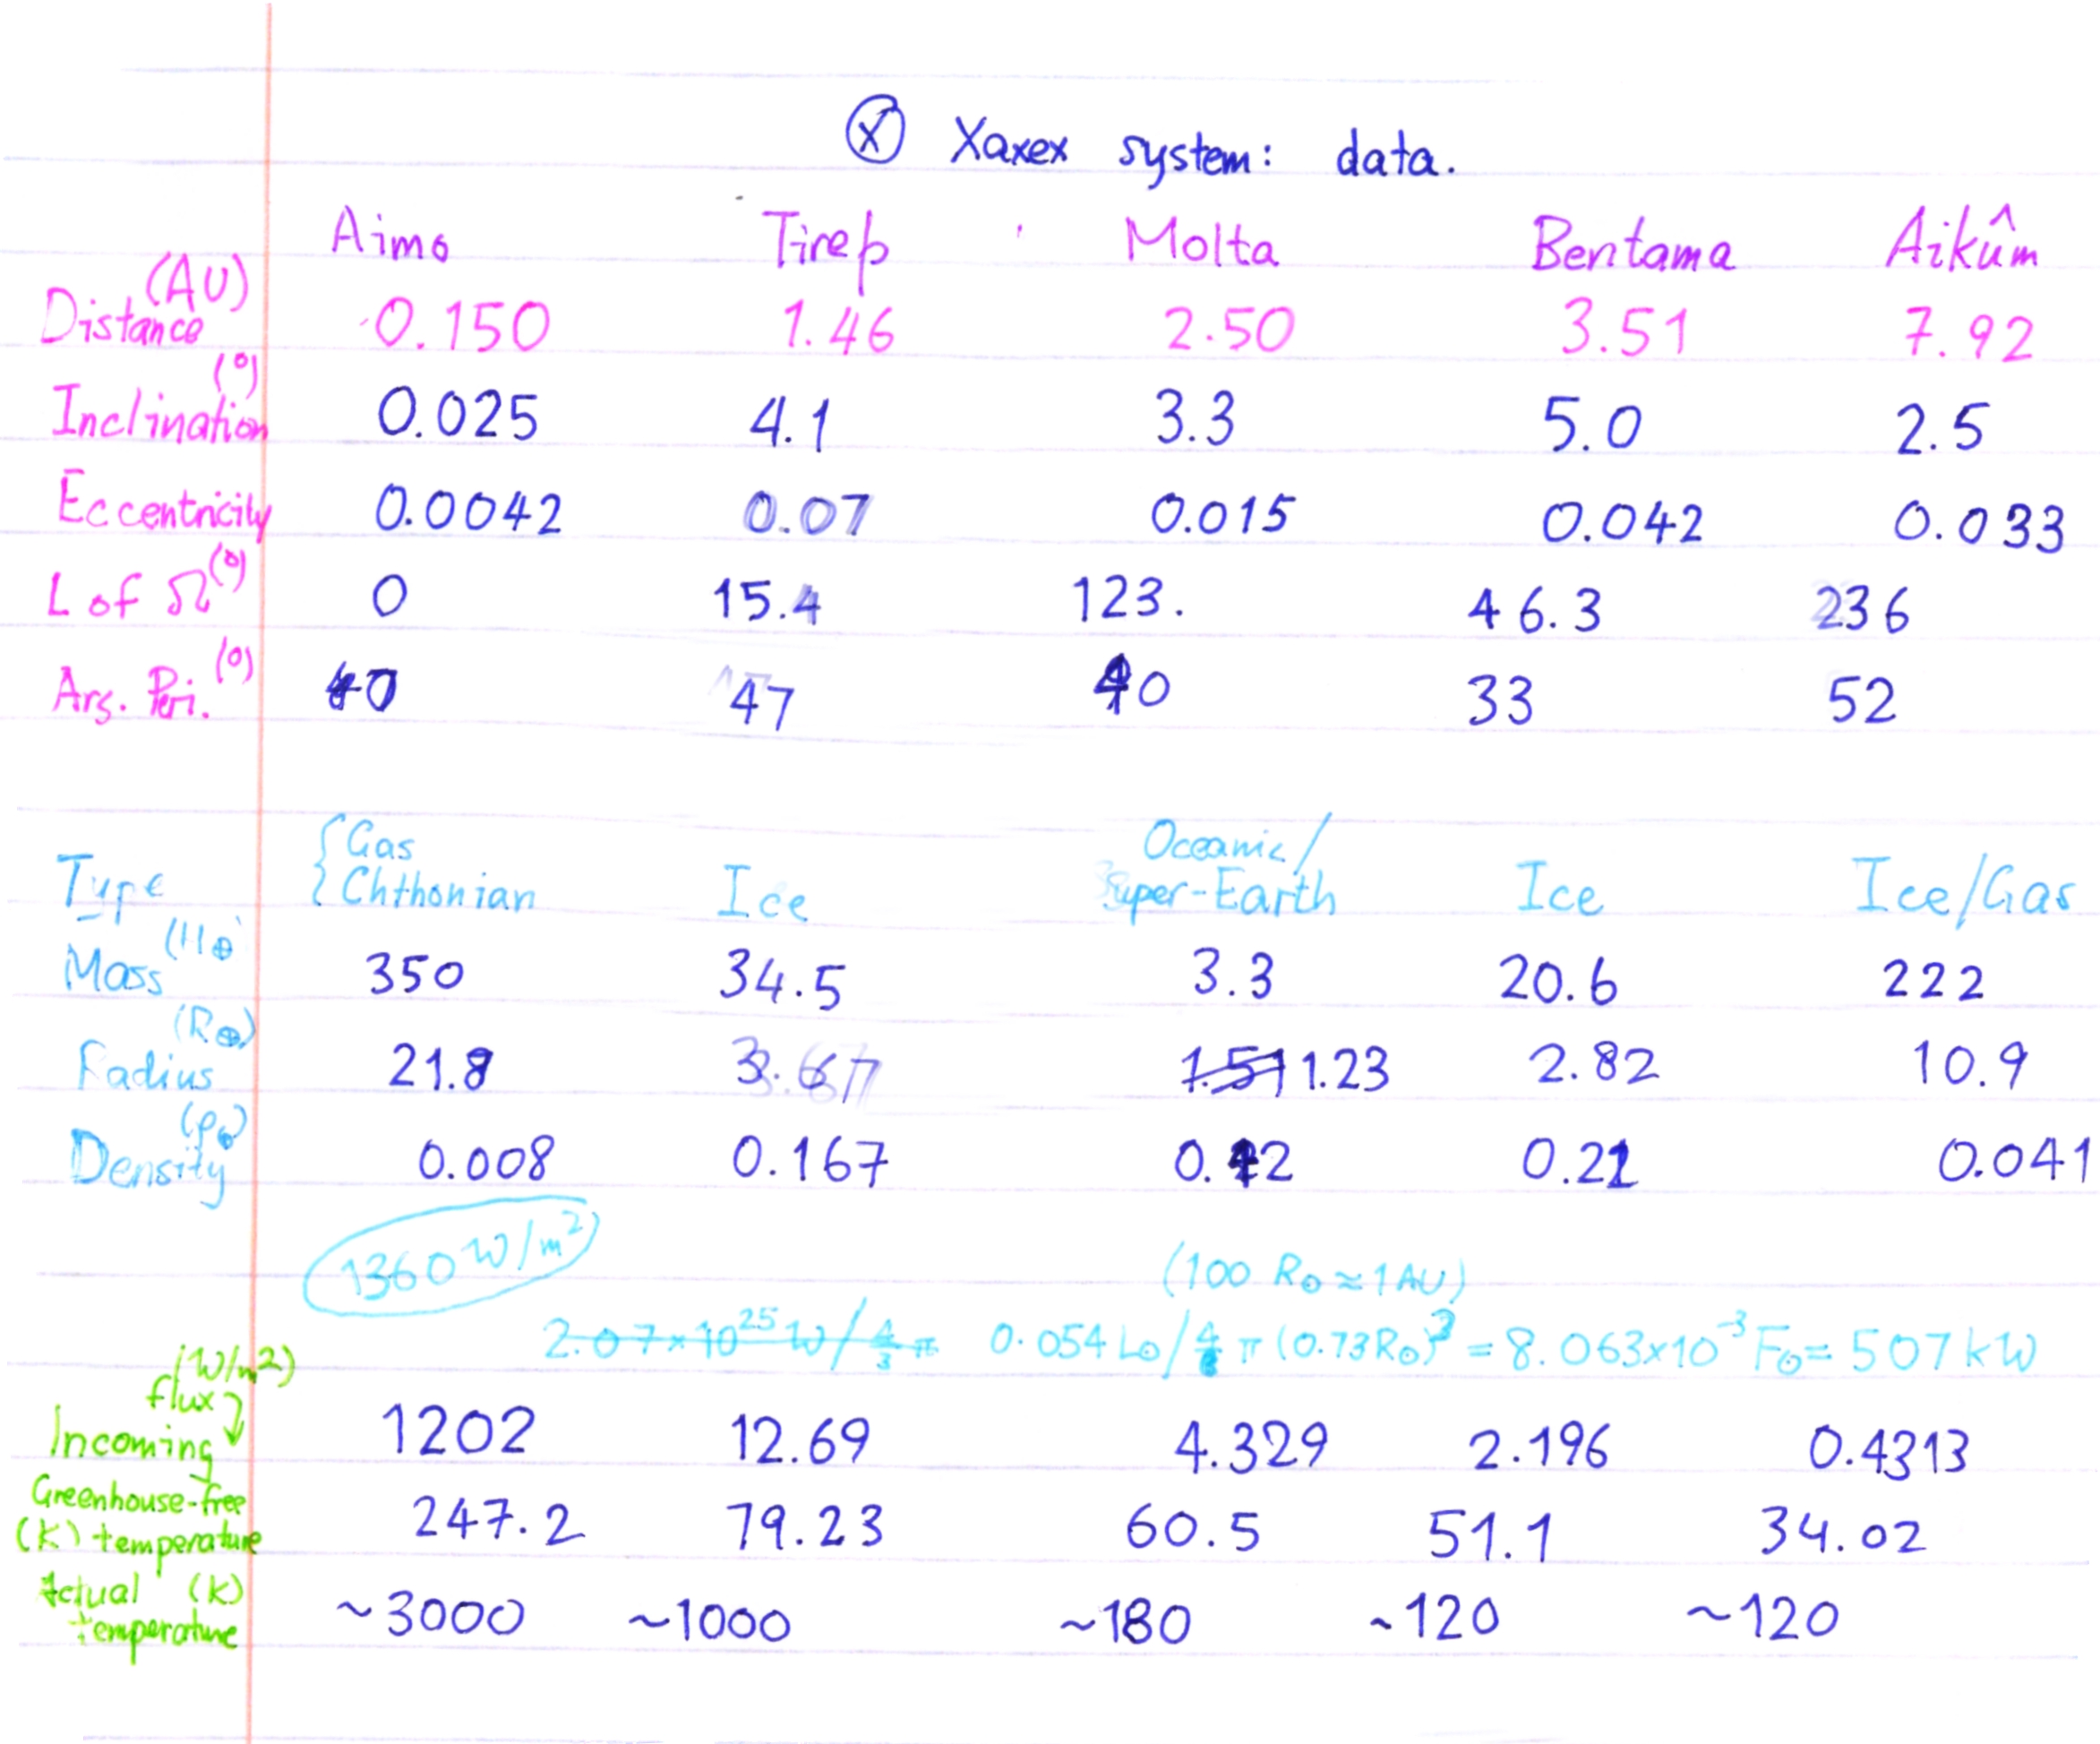 Ⓧ Xaxex system: data.
Aimo Tireþ Molta Bentama Aikûm
Distance (AU) 0.150 1.46 2.50 3.51 7.92
Inclination (°) 0.025 4.1 3.3 5.0 2.5
Eccentricity 0.0042 0.07 0.015 0.042 0.033
L of ☊ (°) 0 15.4 123. 46.3 236
Arg. Peri. (°) 47 33 52
Type {Gas Chthonian Ice Oceanic/Super-Earth Ice Ice/Gas
Mass (M⊕) 350 34.5 3.3 20.6 222
Radius (R⊕) 21.8 3.67 1.51 1.23 2.82 10.9
Density (ρ⊕) 0.008 0.167 0.041
1360 W/m² (100 R☉ ≈ 1 AU)
2.07×10²⁵ W/4/3 π 0.054 L☉/4 π (0.73 R☉)² = 8.063×10⁻³ F☉ = 507 kW
Incoming flux (W/m2) 1202 12.69 4.329 2.196 0.4313
Greenhouse-free temperature (K) 247.2 79.23 60.5 51.1 34.02
Actual temperature (K) ~3000 ~1000 ~180 ~120 ~120